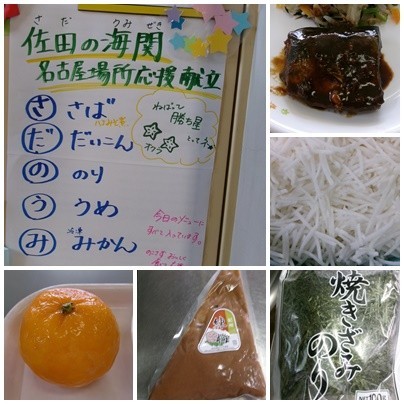 さ だ うみ ぜき
佐田の海関
名古屋場所応援献立
さ さば
だ だいこん
の のり
う うめ
み 冷凍 みかん
ねばって
勝ち星
オクラ
とってネ
今日のメニューに
すべて入っています。
焼きざみ
のり
NET100g